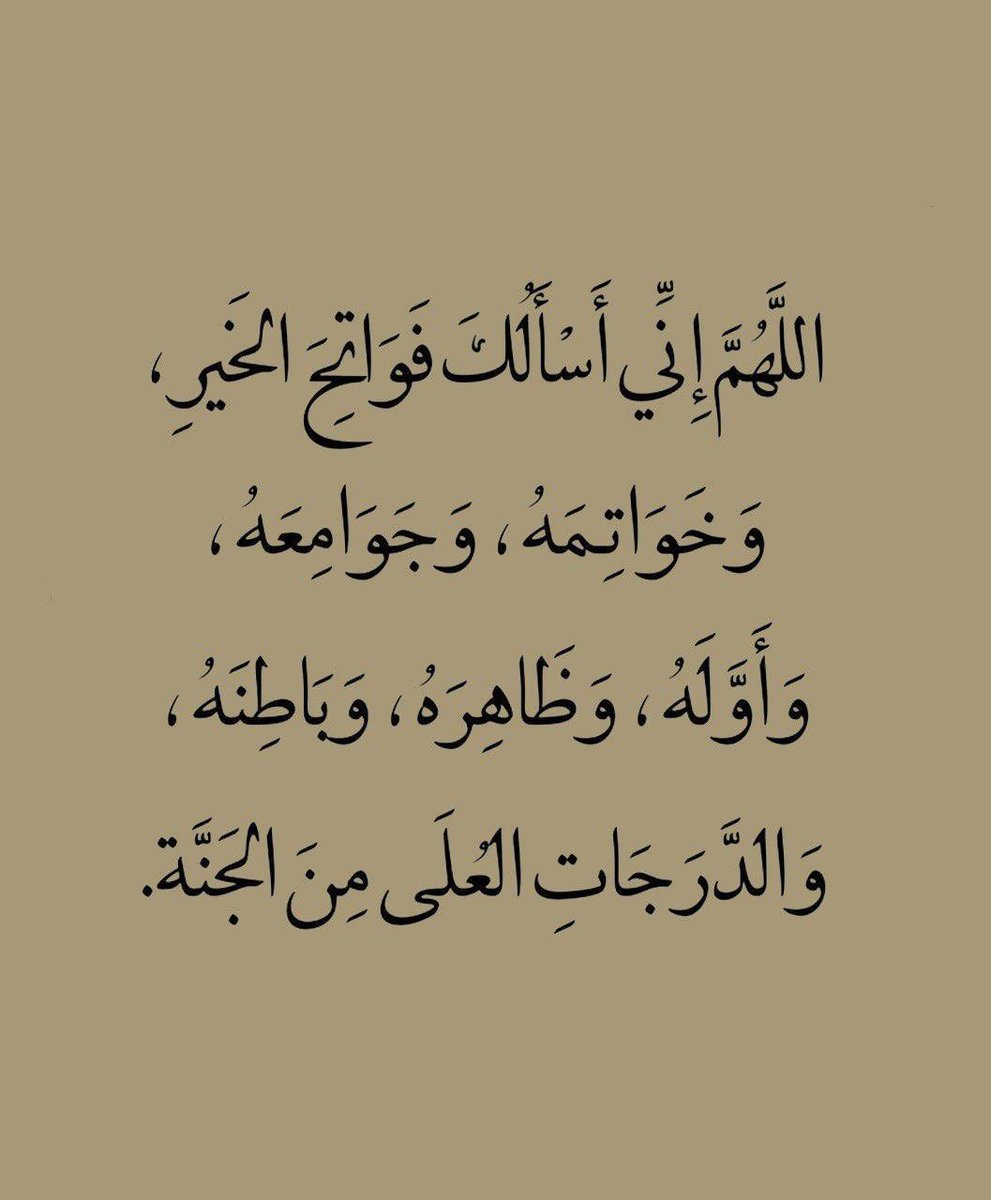 اللَّهُمَّ إِنِّي أَسْأَلُكَ فَوَاتِحَ الخَيرِ،
وَخَوَاتِمَهُ، وَجَوَامِعَهُ،
وَأَوَّلَهُ، وَظَاهِرَهُ، وَبَاطِنَهُ،
وَالدَّرَجَاتِ العُلَى مِنَ الجَنَّة.